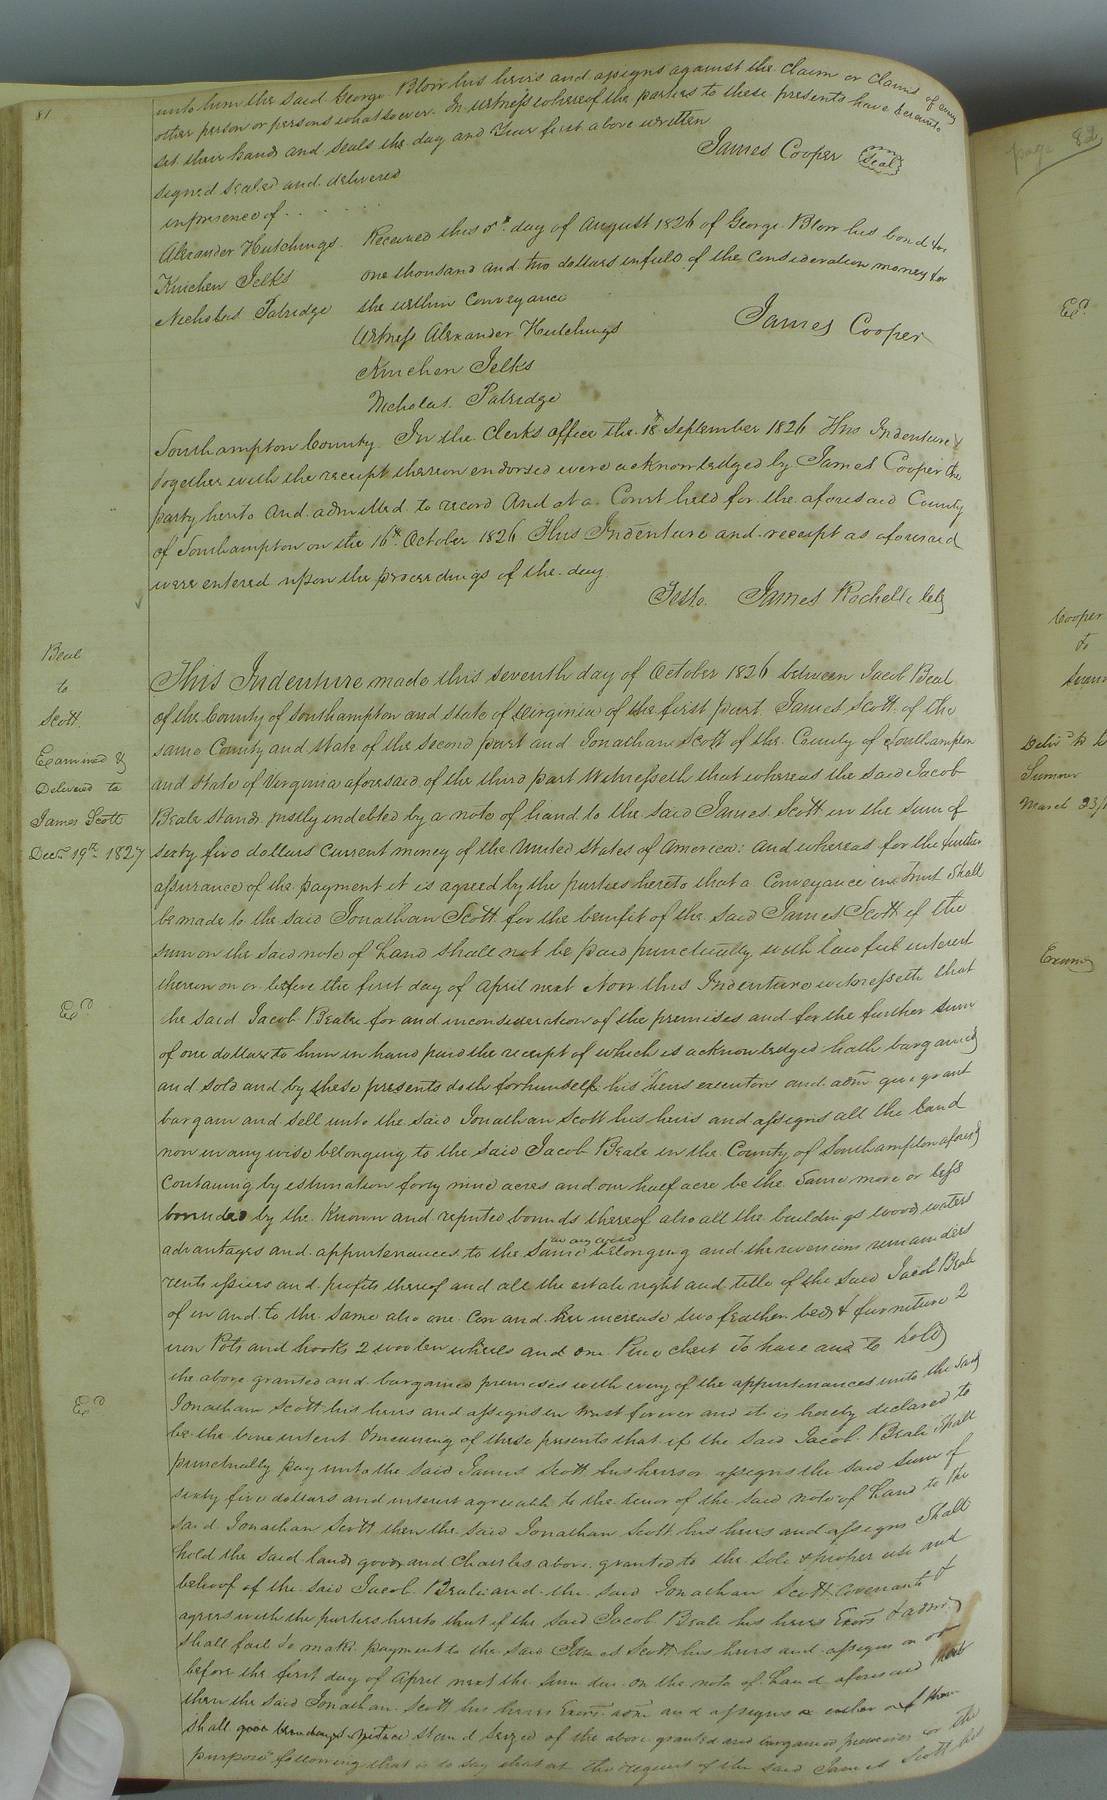 81
unto him the said George Blow his heirs and assigns against the claim or claims of every
other person or persons whatsoever. In witness whereof the parties to these presents have hereunto
set their hands and seals the day and Year first above written
James Cooper Seal
signed sealed and delivered
in presence of
Alexander Hutchings
Kinchen Jelks
Nicholas Patridge
Received this day of August 1826 of George Blow his bond for
one thousand and two dollars in full of the consideration money for
the within Conveyance
James Cooper
Witness Alexander Hutchings
Kinchen Jelks
Nicholas Patridge
Southampton County In the Clerks office the 18th September 1826 This Indenture &
together with the receipt thereon endorsed were acknowledged by James Cooper the
party hereto and admitted to record And at a Court held for the aforesaid County
of Southampton on the 16th October 1826 This Indenture and receipt as aforesaid
were entered upon the proceedings of the day
Teste. James Rochelle Clk
Beal
to
Scott
Examined &
Delivered to
James Scott
Decr 19th 1827
This Indenture made this seventh day of October 1826 between Jacob Beal
of the County of Southampton and state of Virginia of the first part James Scott of the
same County and state of the second part and Jonathan Scott of the County of Southampton
and state of Virginia aforesaid of the third part Witnesseth that whereas the said Jacob
Beale stands justly indebted by a note of hand to the said James Scott in the sum of
sixty five dollars current money of the United States of America: and whereas for the further
assurance of the payment it is agreed by the parties hereto that a Conveyance in Trust shall
be made to the said Jonathan Scott for the benefit of the said James Scott if the
sum on the said note of hand shall not be paid punctually with lawful interest
thereon on or before the first day of April next Now this Indenture witnesseth that
Exd
the said Jacob Beale for and in consideration of the premises and for the further sum
of one dollar to him in hand paid the receipt of which is acknowledged hath bargained
and sold and by these presents doth for himself his heirs executors and adm give grant
bargain and sell unto the said Jonathan Scott his heirs and assigns all the land
now in any wise belonging to the said Jacob Beale in the County of Southampton aforesd
Containing by estimation forty nine acres and one half acre be the same more or less
bounded by the known and reputed bounds thereof also all the buildings woods waters
advantages and appurtenances to the same in any wise belonging and the revercions remainders
rents issues and profits thereof and all the estate right and title of the said Jacob Beale
of in and to the same also one Cow and her increase two feather beds & furniture 2
iron Pots and hooks 2 woolen wheels and one Pine chest To have and to hold
the above granted and bargained premises with every of the appurtenances unto the said
Exd
Jonathan Scott his heirs and assigns in trust forever and it is hereby declared to
be the true intent & meaning of these presents that if the said Jacob Beale shall
punctually pay unto the said James Scott his heirs or assigns the said sum of
sixty five dollars and interest agreeable to the tenor of the said note of hand to the
said Jonathan Scott then the said Jonathan Scott his heirs and assigns shall
hold the said land goods and Chattles above granted to the sole & proper use and
behoof of the said Jacob Beale and the said Jonathan Scott Covenants &
agrees with the parties hereto that if the said Jacob Beale his heirs Exors & admr
shall fail to make payment to the said James Scott his heirs and assigns on or
before the first day of April next the sum due on the note of hand aforesaid that
then the said Jonathan Scott his heirs Exors adm and assigns or either of them
shall stand seized of the above granted and bargained premises for the
purpose following that is to say that at the request of the said James Scott his
page 82
Exd
Cooper
to
Delivd to
Sumner
March 23/
Examd